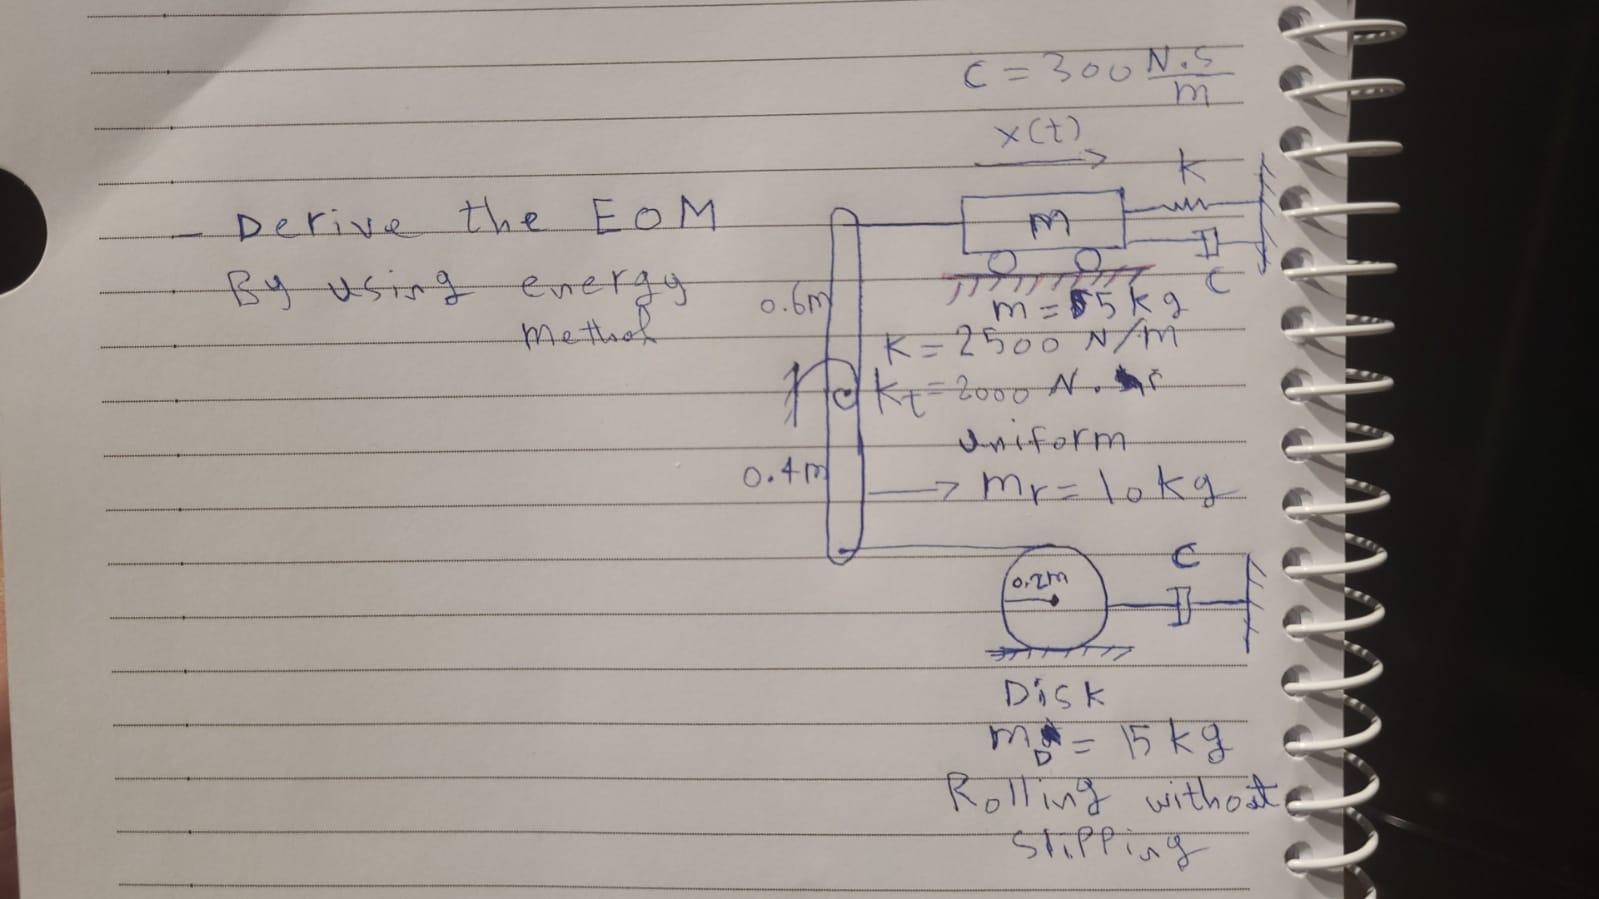 C = 300 N.s/m
x(t)
k
- Derive the EOM
m
By using energy
C
0.6m
m = 55 kg
Method
K = 2500 N/m
Kt = 2000 N.
uniform
0.4m
mr = 10 kg
C
0.2m
Disk
mD = 15 kg
Rolling without
slipping